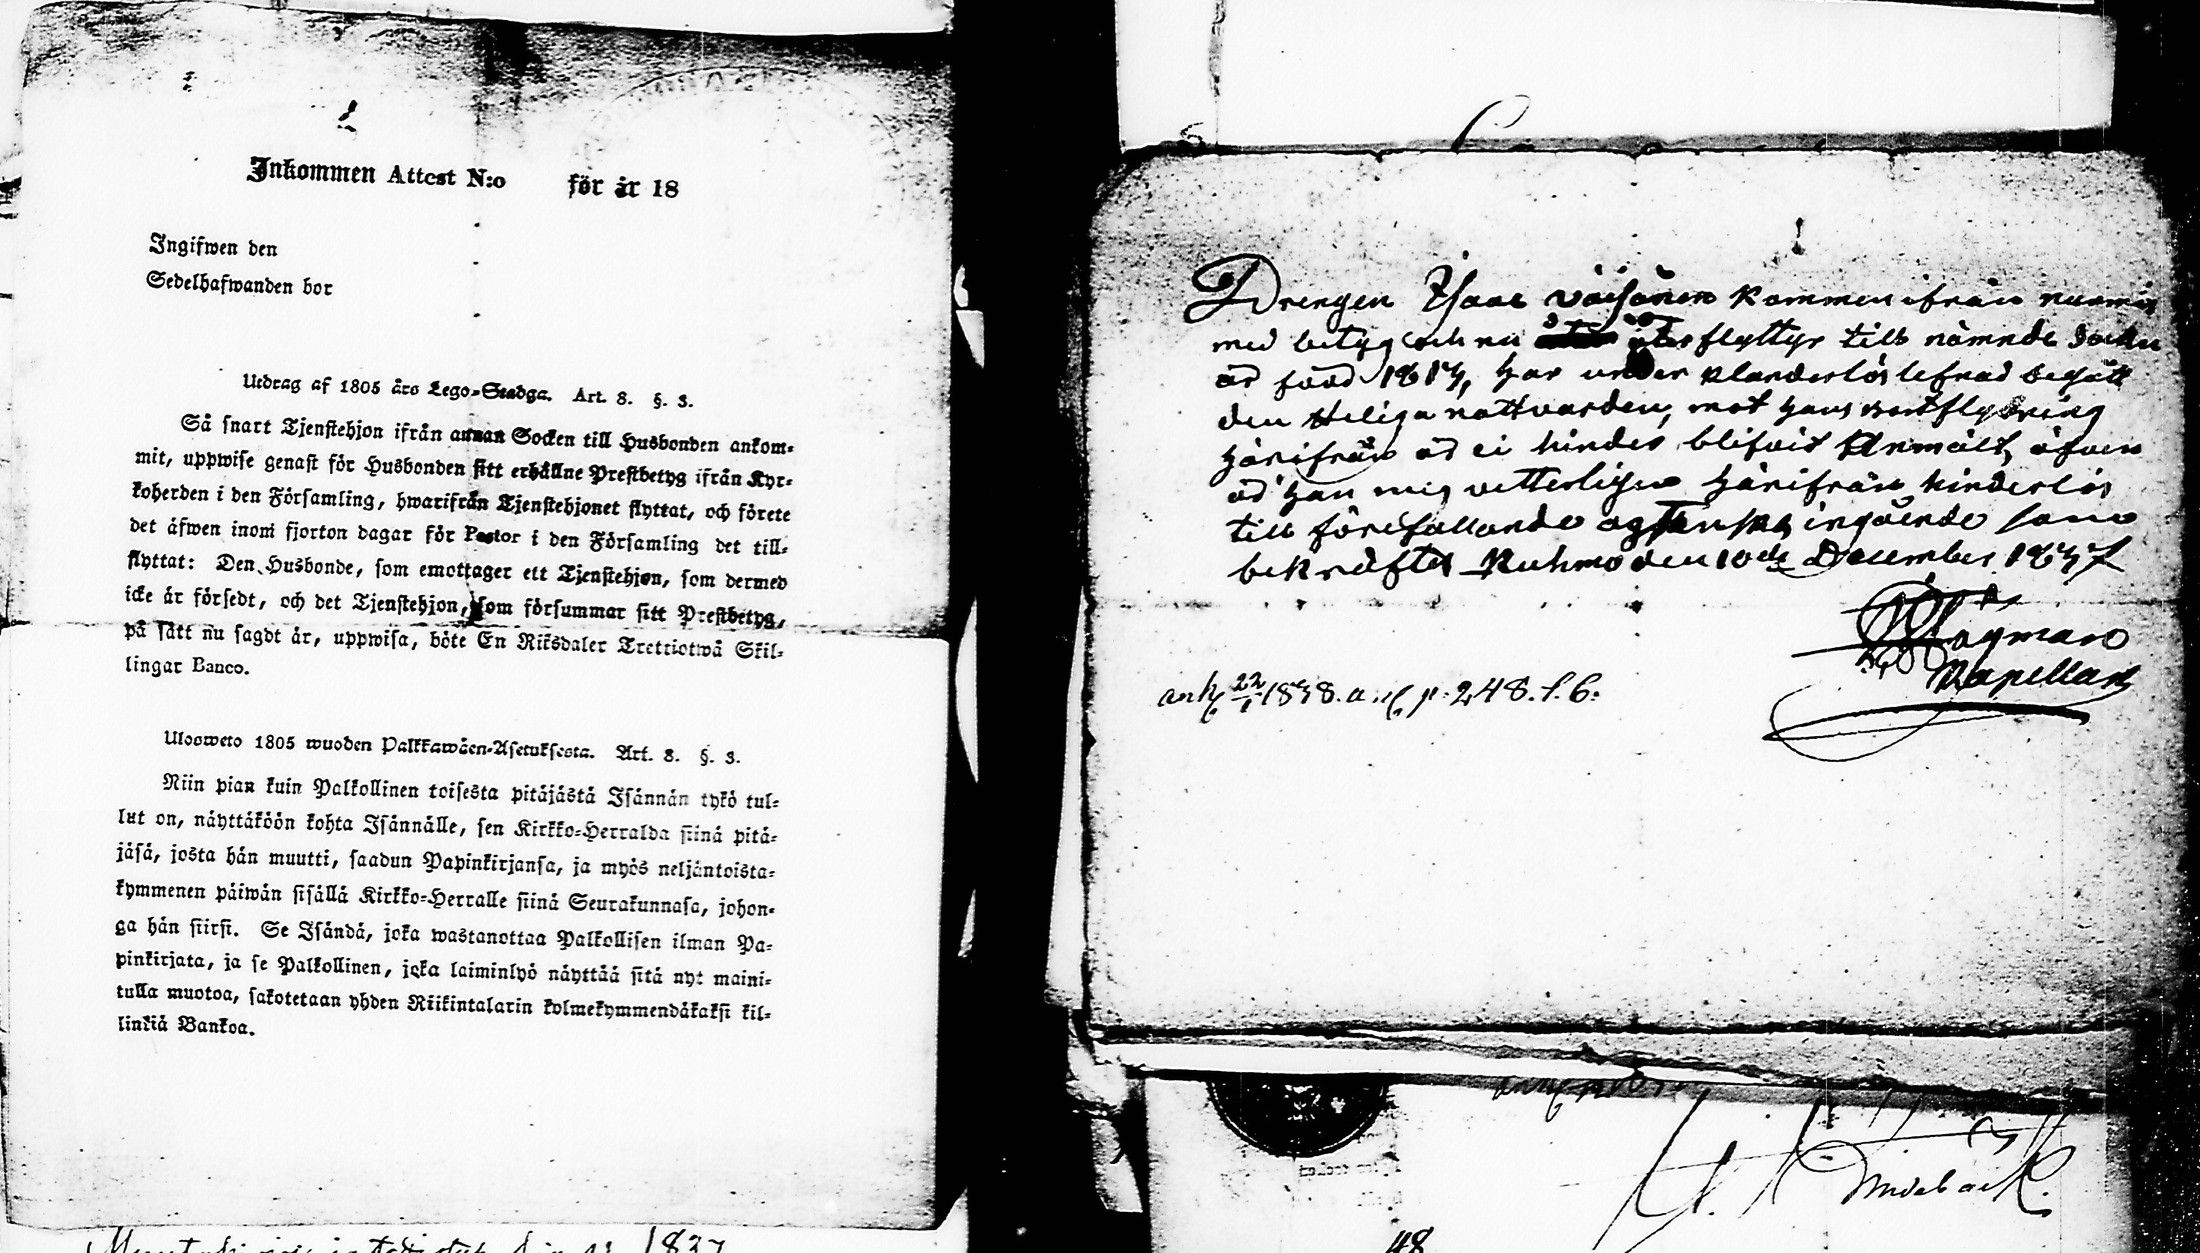 Inkommen Attest N:o för år 18
Ingifwen den
Sedelhafwanden bor
Utdrag af 1805 års Lego-Stadga. Art. 8. §. 3.
Så snart Tjenstehjon ifrån annan Socken till Husbonden ankom-
mit, uppwise genast för Husbonden sitt erhållne Prestbetyg ifrån Kyr-
koherden i den Församling, hwarifrån Tjenstehjonet flyttat, och förete
det äfwen inom fjorton dagar för Pastor i den Församling det till-
flyttat: Den Husbonde, som emottager ett Tjenstehjon, som dermed
icke är försedt, och det Tjenstehjon, som försummar sitt Prestbetyg,
på sätt nu sagdt är, uppwisa, böte En Riksdaler Trettiotwå Skil-
lingar Banco.
Ulosweto 1805 wuoden Palkkawäen-Asetuksesta. Art. 8. §. 3.
Niin pian kuin Palkollinen toisesta pitäjästä Isännän tykö tul-
lut on, näyttäköön kohta Isännälle, sen Kirkko-Herralda siinä pitä-
jäsä, josta hän muutti, saadun Papinkirjansa, ja myös neljäntoista-
kymmenen päiwän sisällä Kirkko-Herralle siinä Seurakunnasa, johon-
ga hän siirsi. Se Isändä, joka wastanottaa Palkollisen ilman Pa-
pinkirjata, ja se Palkollinen, joka laiminlyö näyttää sitä nyt maini-
tulla muotoa, sakotetaan yhden Riikintalarin kolmekymmendäkaksi kil-
linkiä Bankoa.
1837
Drengen Isaac Väisänen kommen ifrån nurmis
med betyg och nu åter flyttyr till nämnde Sockn
är född 1817, har under klanderlös lefnad begått
den Heliga nattvarden, mot hans bortflyttning
härifrån är ei hinder blifvit Anmält, äfven
är han mig vetterligen härifrån hinderlös
till förefallande ägtenskap ingående som
bekräftas Kuhmo den 10de December 1837
Wagman
Kapellan
ank. 22/1 1838. anf. p. 248. f. 6.
48